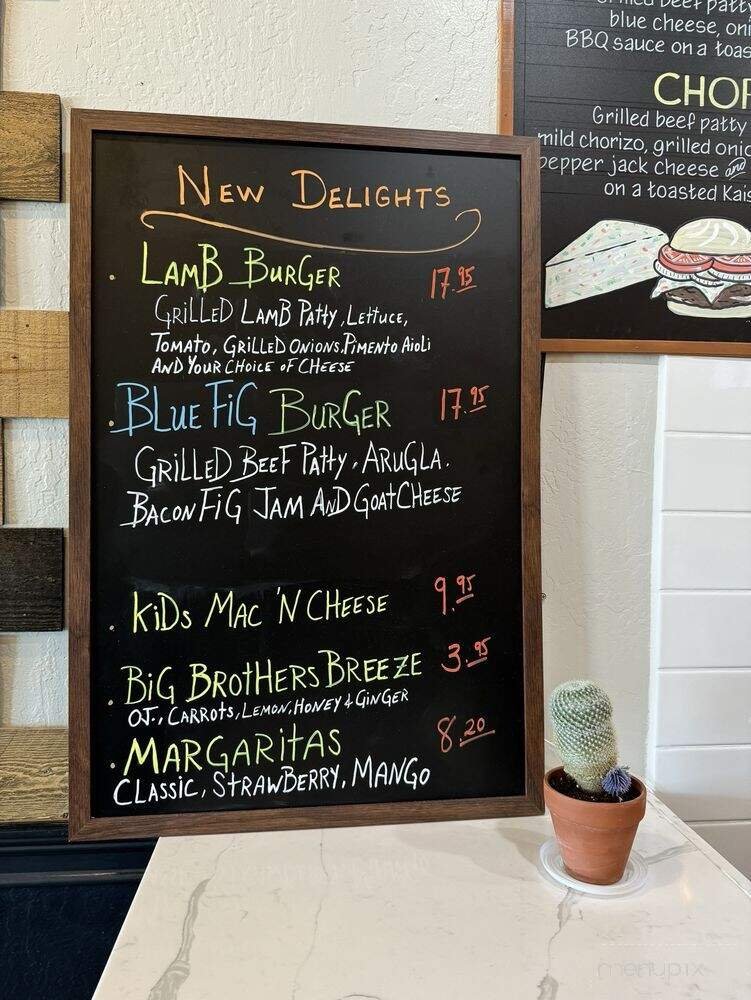 NEW DELIGHTS
LAMB BURGER 17.95
GRILLED LAMB PATTY, LETTUCE,
TOMATO, GRILLED ONIONS, PIMENTO AIOLI
AND YOUR CHOICE OF CHEESE
BLUE FIG BURGER 17.95
GRILLED BEEF PATTY, ARUGLA.
BACON FIG JAM AND GOAT CHEESE
KIDS MAC 'N CHEESE 9.95
BIG BROTHERS BREEZE 3.95
OJ., CARROTS, LEMON, HONEY & GINGER
MARGARITAS 8.20
CLASSIC, STRAWBERRY, MANGO
Grilled beef patty
blue cheese, oni
BBQ sauce on a toas
CHOR
Grilled beef patty
mild chorizo, grilled onio
pepper jack cheese and
on a toasted Kais
menupix